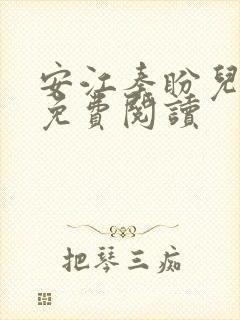 安江秦盼兒
免費閱讀
把琴三痴